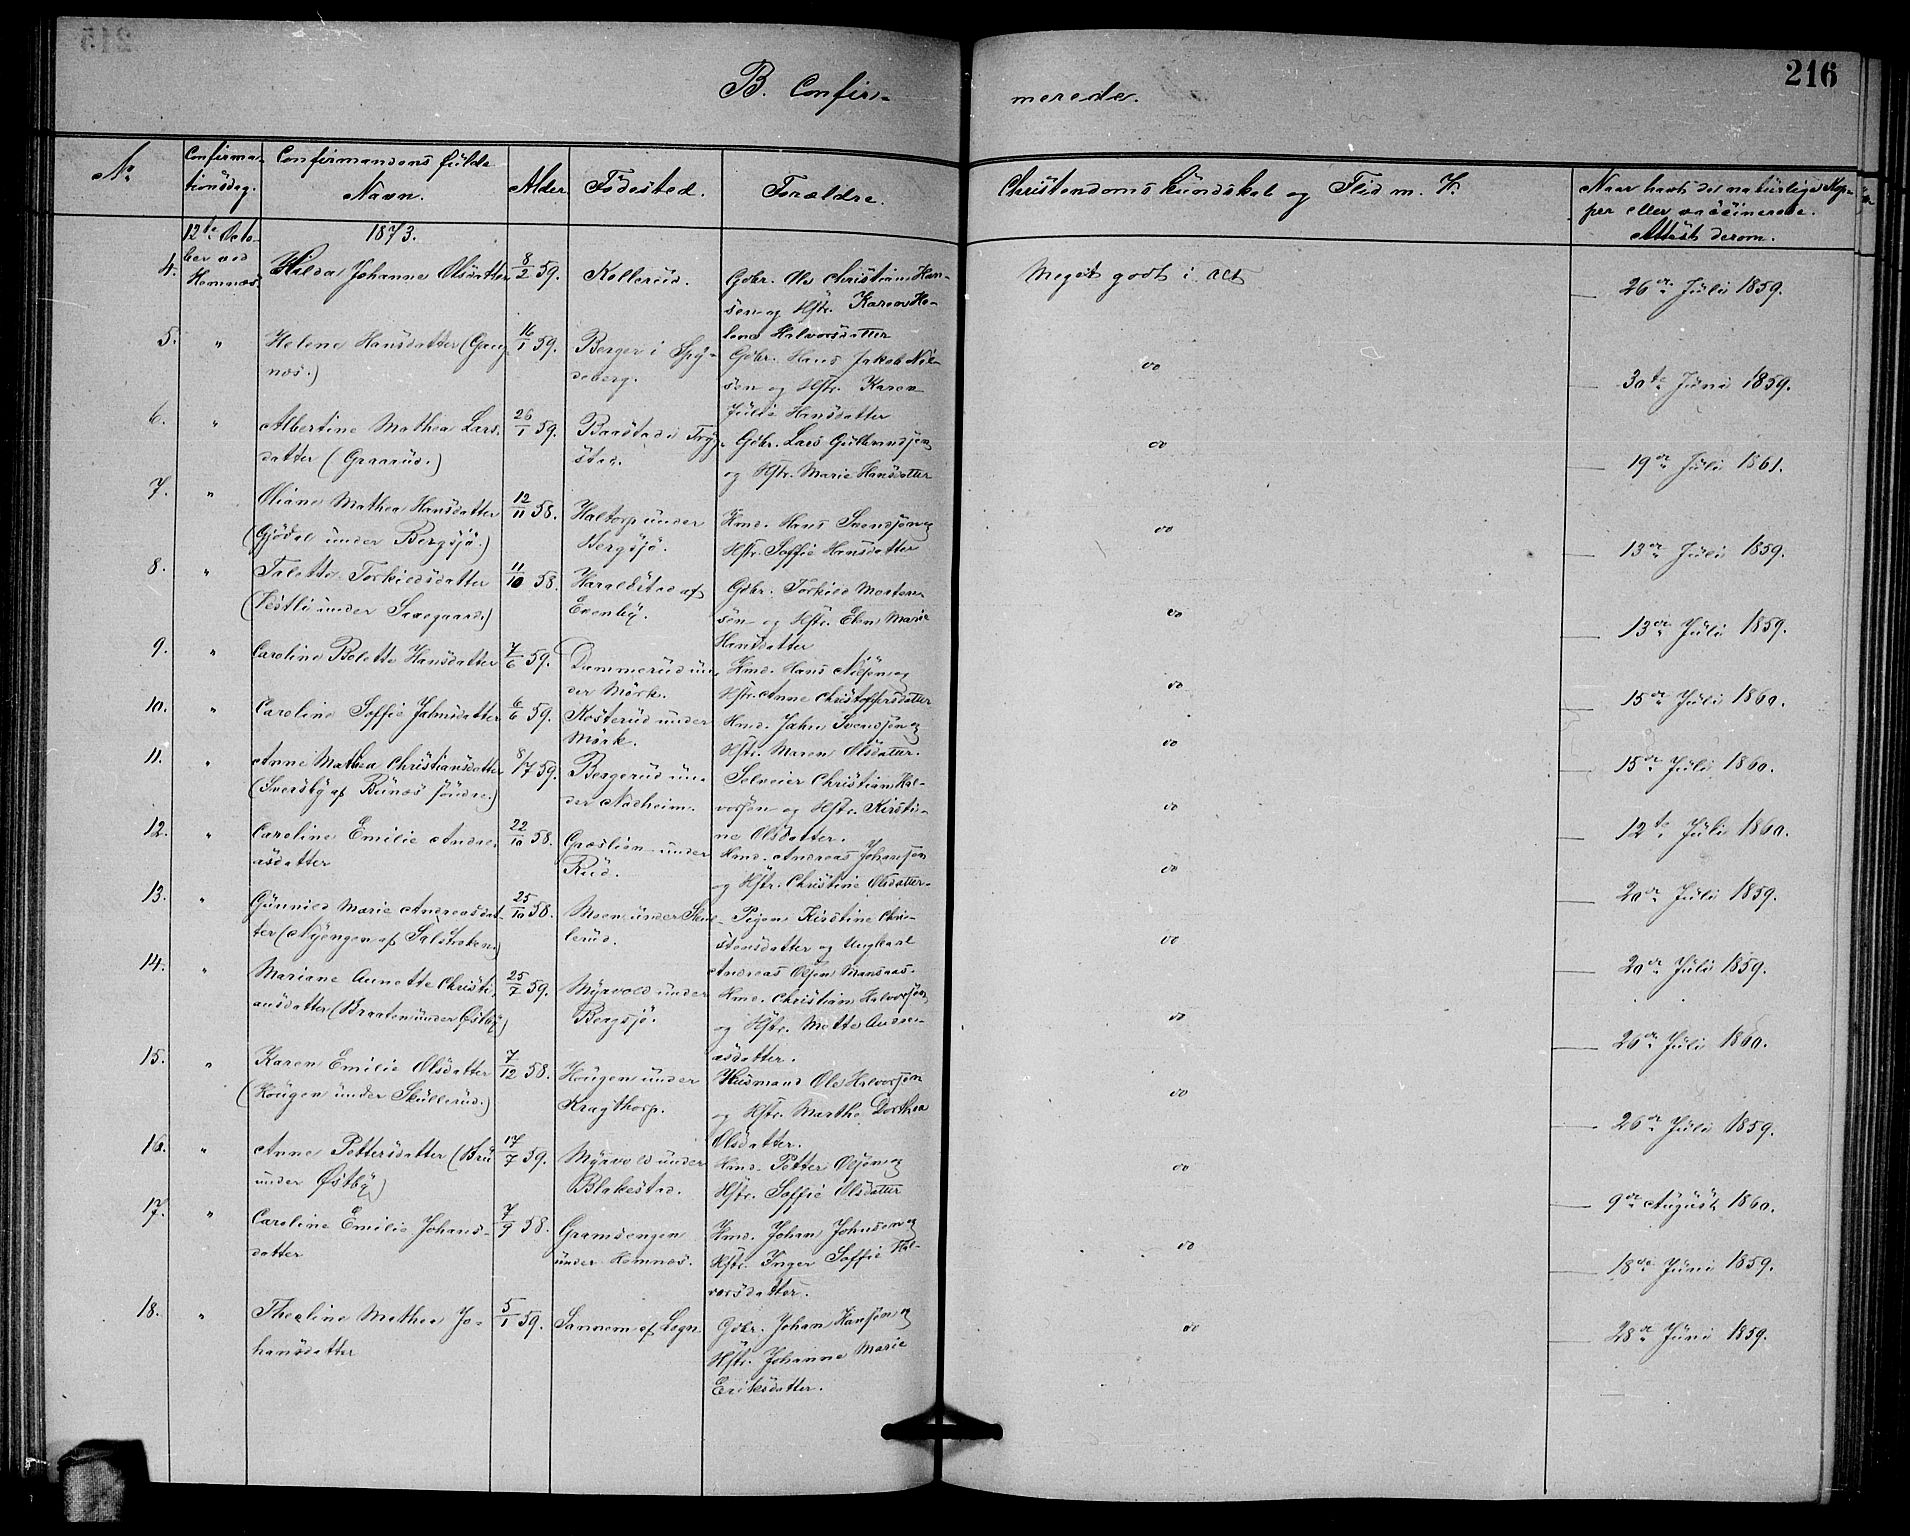 216
B. Confir-
merede.
No
Confirma-
tionsdag.
Confirmandens fulde
Navn.
Alder
Fødested.
Forældre.
Christendoms Kundskab og Flid m. V.
Naar havt de naturlige Kop-
per eller vaccinerede.
Attest derom.
12te Octo-
ber ved
Hemnæs
1873.
4.
Hilda Johanne Olsdatter
8/2 59.
Kollerud.
Gdbr. Ole Christian Han-
sen og Hstr. Karen He-
lene Halvorsdatter
Meget godt i Alt
26de Juli 1859.
5.
"
Helene Hansdatter (
næs.)
16/1 59.
Berger i Spy-
deberg.
Gdbr. Hans Jakob Niel-
sen og Hstr. Karen
Julie Hansdatter
do
30te Juni 1859.
6.
"
Albertine Mathea Lars-
datter (Graarud.)
26/1 59.
Baastad i Tryg-
stad.
Gdbr. Lars Gulbrandsen
og Hstr. Marie Hansdatter
do
19de Juli 1861.
7.
"
Oliane Mathea Hansdatter
(Gjødal under Bergsjø.)
12/11 58.
Haltorp under
Bergsjø.
Hmd. Hans Svendsen og
Hstr. Soffie Hansdatter
do
13de Juli 1859.
8.
"
Talette Torkildsdatter
(Vestli under Skaegaard.)
11/10 58.
Haraldstad af
Evenby.
Gdbr. Torkild Morten-
sen og Hstr. Elen Marie
Hansdatter
do
13de Juli 1859.
9.
"
Caroline Belette Hansdatter
7/6 59.
Dammerud un-
der Mørk.
Hmd. Hans Nilsen og
Hstr. Anne Christoffersdatter
do
15de Juli 1860.
10.
"
Caroline Soffie Jahnsdatter
6/6 59.
Kosterud under
Mørk.
Hmd. Jahn Svendsen og
Hstr. Maren Olsdatter.
do
15de Juli 1860.
11.
"
Anne Mathea Christiansdatter
(Sversby af Bunes søndre.)
8/17 59.
Bergerud un-
der Aadheim.
Selveier Christian Hal-
vorsen og Hstr. Kirsti-
ne Olsdatter.
do
12te Juli 1860.
12.
"
Caroline Emilie Andre-
asdatter
22/10 58.
Græslien under
Rud.
Hmd. Andreas Johansen
og Hstr. Christine Olsdatter.
do
20de Juli 1859.
13.
"
Gunnild Marie Andreasdat-
ter (Nyengen af )
25/10 58.
Moen under Skul-
lerud.
Pigen Kirstine Chri-
stensdatter og Ungkarl
Andreas Olsen Mansaas.
do
20de Juli 1859.
14.
"
Mariane Annette Christi-
ansdatter (Braaten under Østby)
25/7 59.
Myrvold under
Bergsjø.
Hmd. Christian Halvorsen
og Hstr. Mette Andre-
asdatter.
do
26de Juli 1860.
15.
"
Karen Emilie Olsdatter
(Hougen under Skullerud.)
7/12 58.
Hougen under
Kragthorp.
Husmand Ole Halvorsen
og Hstr. Marthe Dorthea
Olsdatter.
do
26de Juli 1859.
16.
"
Anne Pettersdatter (Bru
under Østby)
17/7 59.
Myrvold under
Blakestad.
Hmd. Petter Olsen og
Hstr. Soffie Olsdatter
do
9de August 1860.
17.
"
Caroline Emilie Johans-
datter
7/9 58.
Gramsengen
under Hemnæs.
Hmd. Johan Johnsen og
Hstr. Inger Soffie Hal-
vorsdatter.
do
18de Juni 1859.
18.
"
Thealine Mathea Jo-
hansdatter
5/1 59.
Sannem af Løgn
Gdbr. Johan Hansen og
Hstr. Johanne Marie
Eriksdatter.
do
28de Juni 1859.